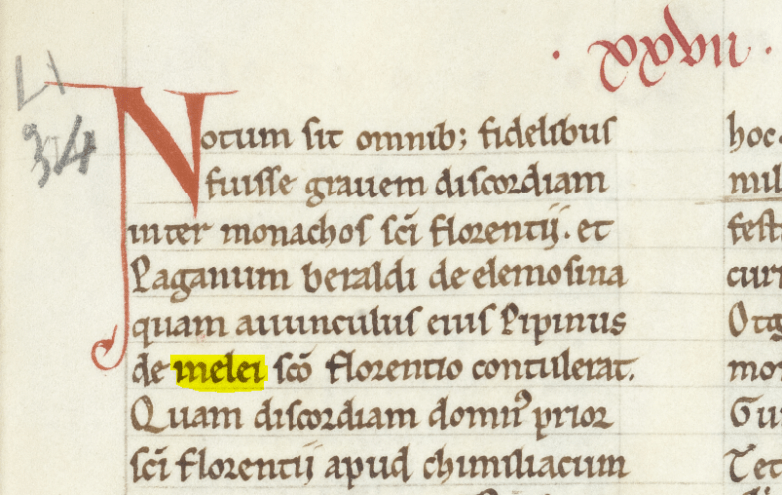 · xxvii ·
LI
34
Notum sit omnib; fidelibus
fuisse grauem discordiam
inter monachos sc̄i florentij. et
Paganum beraldi de elemosina
quam auunculus eius Pipinus
de melei sc̄o florentio contulerat.
Quam discordiam domnꝰ prior
sc̄i florentij apud chimiliacum
hoc
mil
fest
cur
Otg
mo
Gu
Tet